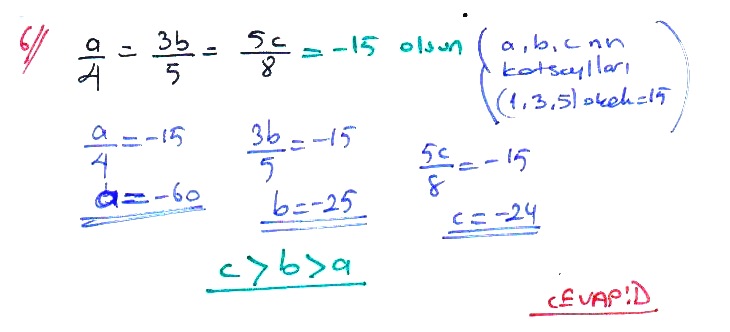 6// a/4 = 3b/5 = 5c/8 = -15 olsun (a, b, c nın
katsayıları
(1,3,5) okek=15)
a/4 = -15 3b/5 = -15 5c/8 = -15
a = -60 b = -25 c = -24
c > b > a
CEVAP:D